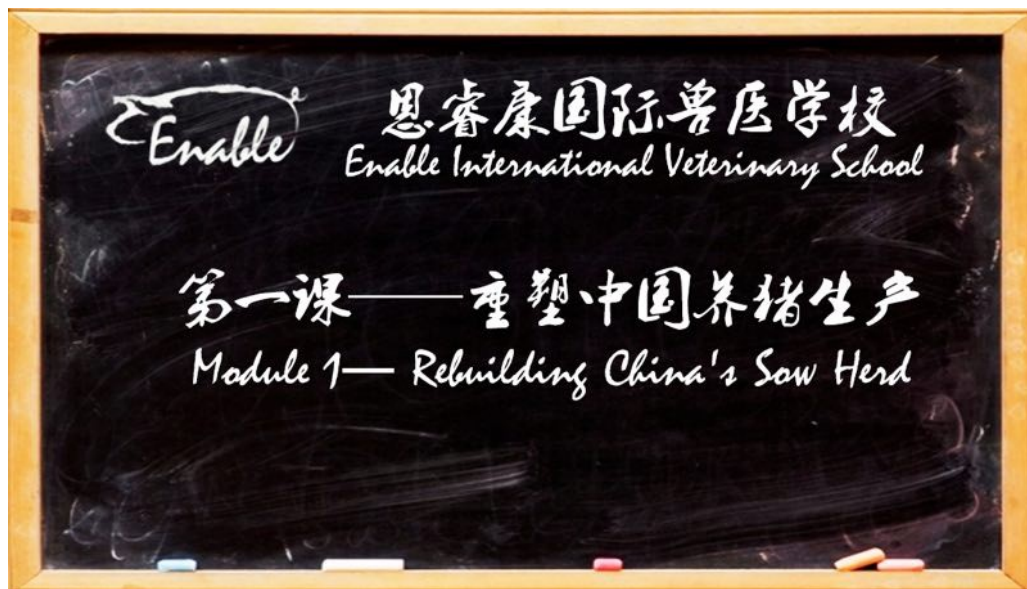 Enable
恩睿康国际兽医学校
Enable International Veterinary School
第一课——重塑中国养猪生产
Module 1— Rebuilding China's Sow Herd